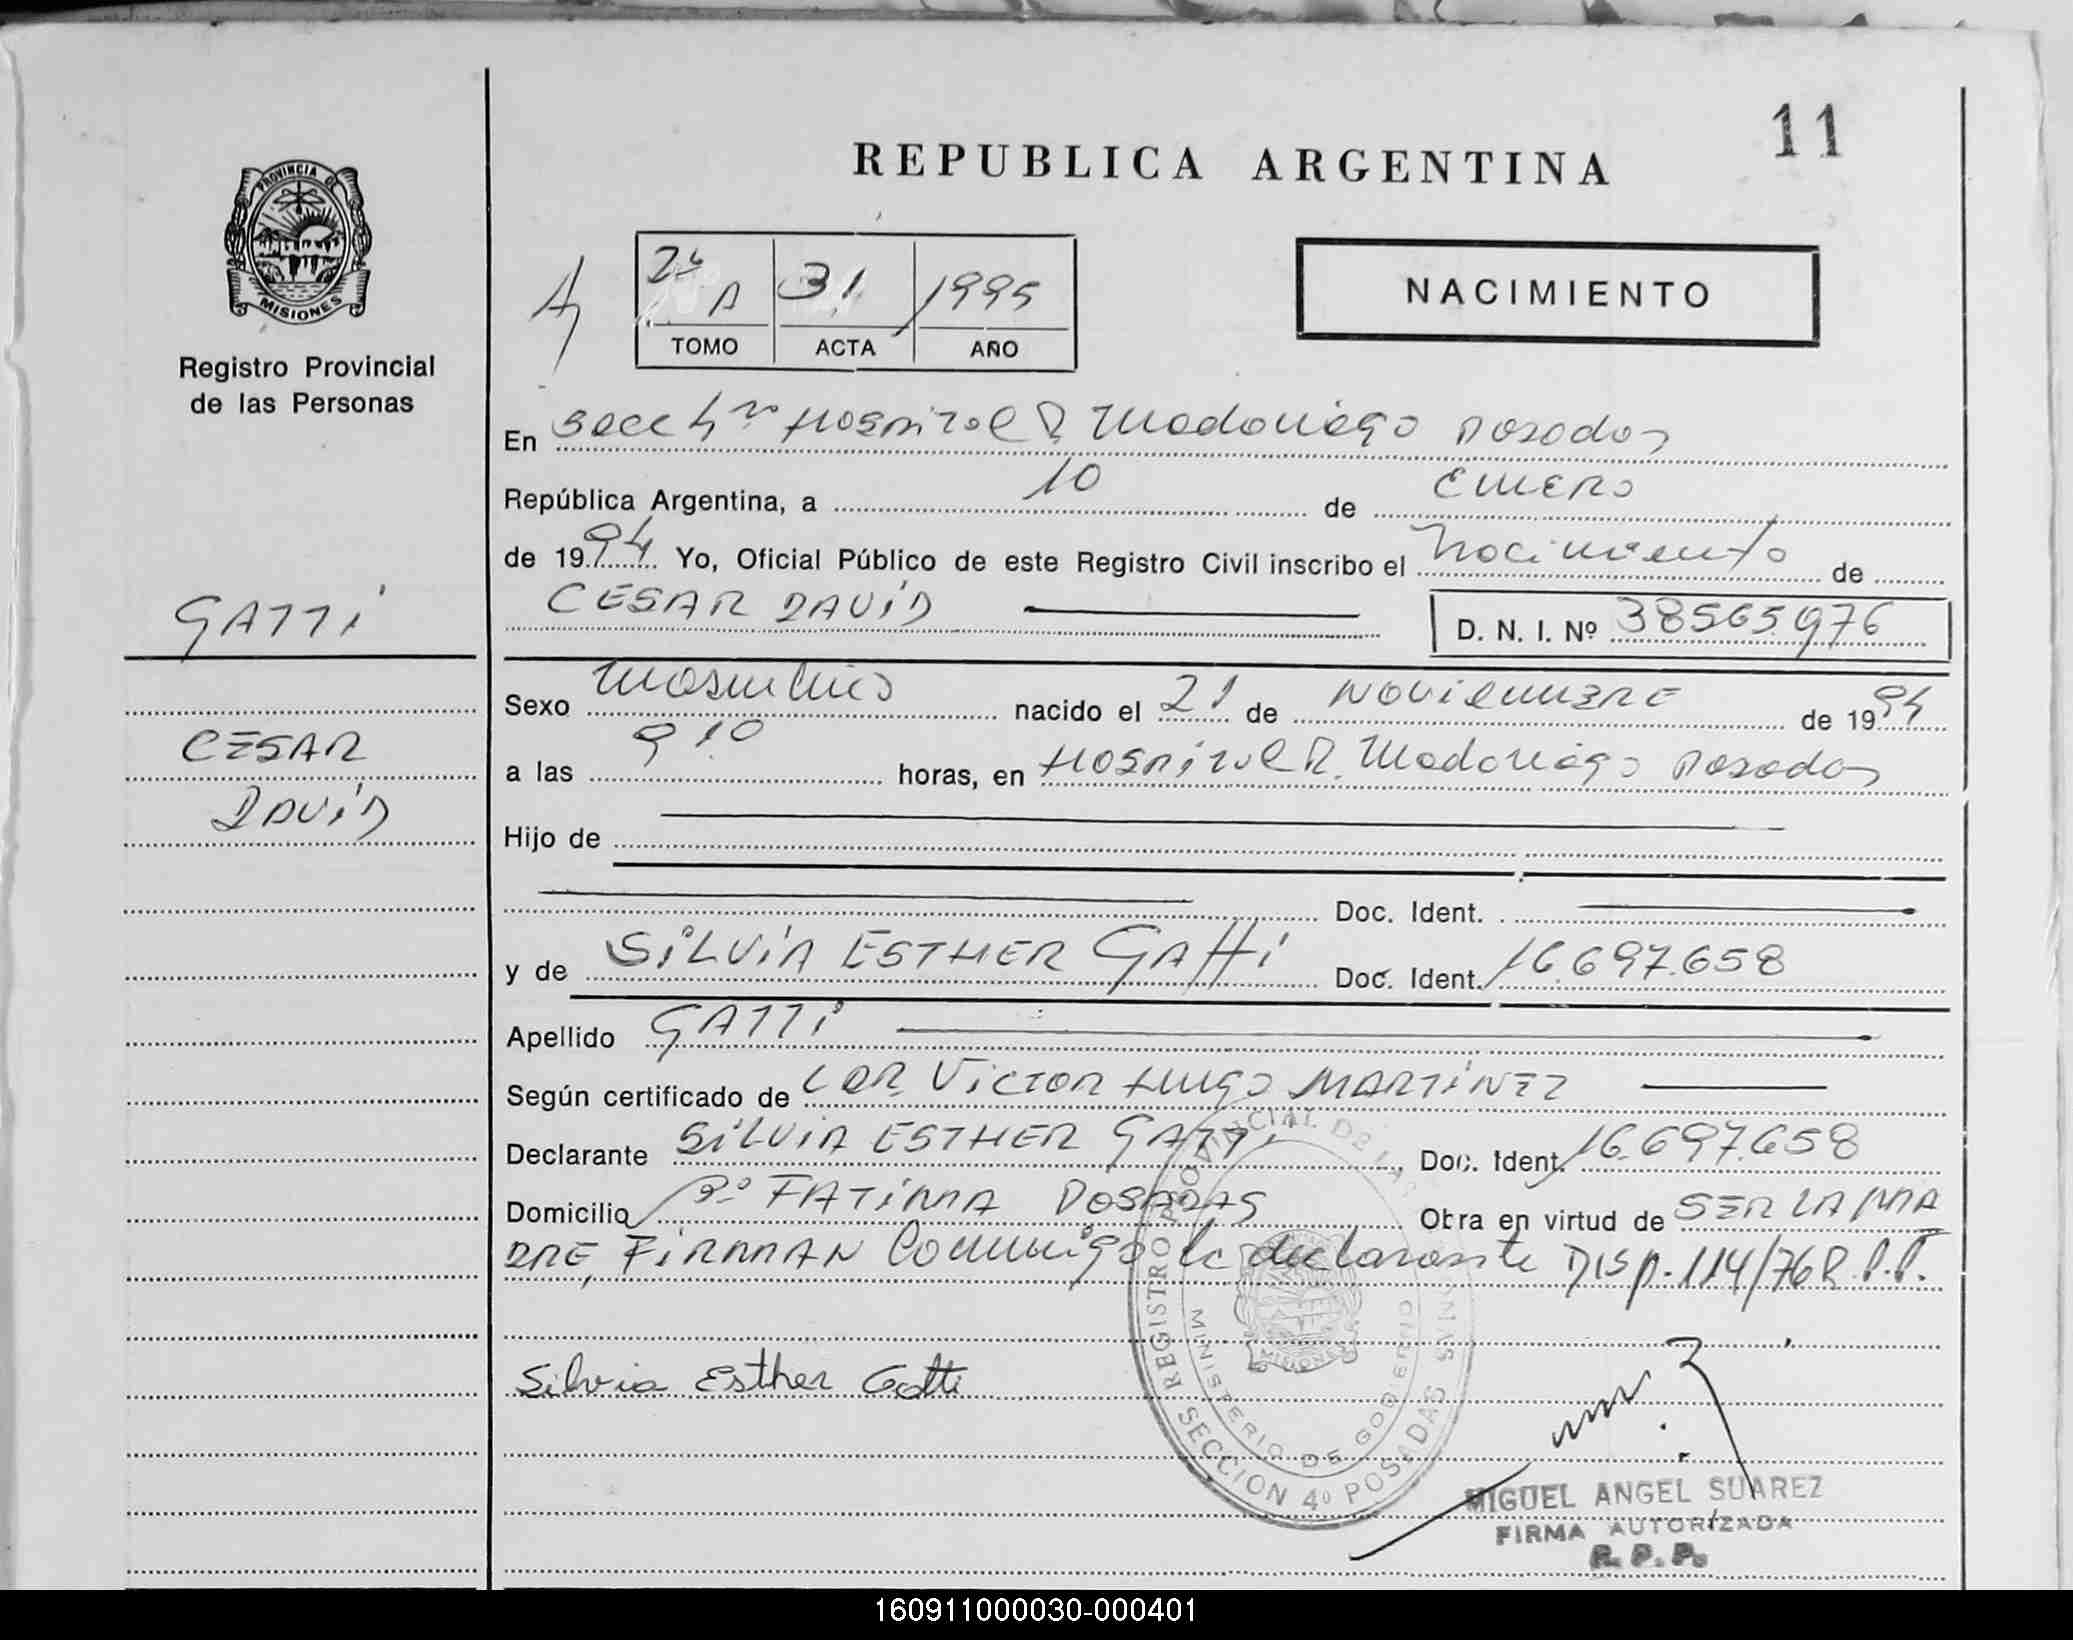 11
REPUBLICA ARGENTINA
PROVINCIA DE
MISIONES
Registro Provincial
de las Personas
A 31 1995
TOMO ACTA AÑO
NACIMIENTO
En Secc 4ta Hospital R. Madariaga Posadas
República Argentina, a 10 de ENERO
de 1994 Yo, Oficial Público de este Registro Civil inscribo el Nacimiento de
CESAR DAVID D. N. I. Nº 38565976
GATTI
CESAR
DAVID
Sexo Masculino nacido el 21 de NOVIEMBRE de 1994
a las 9 10 horas, en Hospital R. Madariaga Posadas
Hijo de
Doc. Ident.
y de SILVIA ESTHER GATTI Doc. Ident. 16.697.658
Apellido GATTI
Según certificado de VICTOR HUGO MARTINEZ
Declarante SILVIA ESTHER GATTI Doc. Ident. 16.697.658
Domicilio Bº FATIMA POSADAS Obra en virtud de SER LA MA
DRE, FIRMAN Conmigo la declarante DISP. 114/76 R.P.P.
Silvia Esther Gatti
REGISTRO PROVINCIAL DE LAS PERSONAS
MINISTERIO DE GOBIERNO
MISIONES
SECCION 4º POSADAS
MIGUEL ANGEL SUAREZ
FIRMA AUTORIZADA
R. P. P.
160911000030-000401